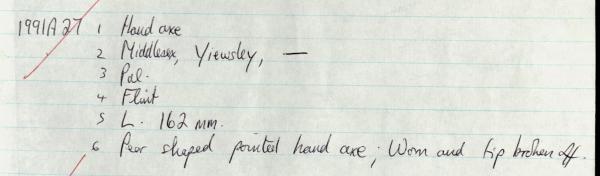 1991A27 1 Hand axe
2 Middlesex, Yiewsley, —
3 Pal.
4 Flint
5 L. 162 mm.
6 Pear shaped pointed hand axe; Worn and tip broken off.